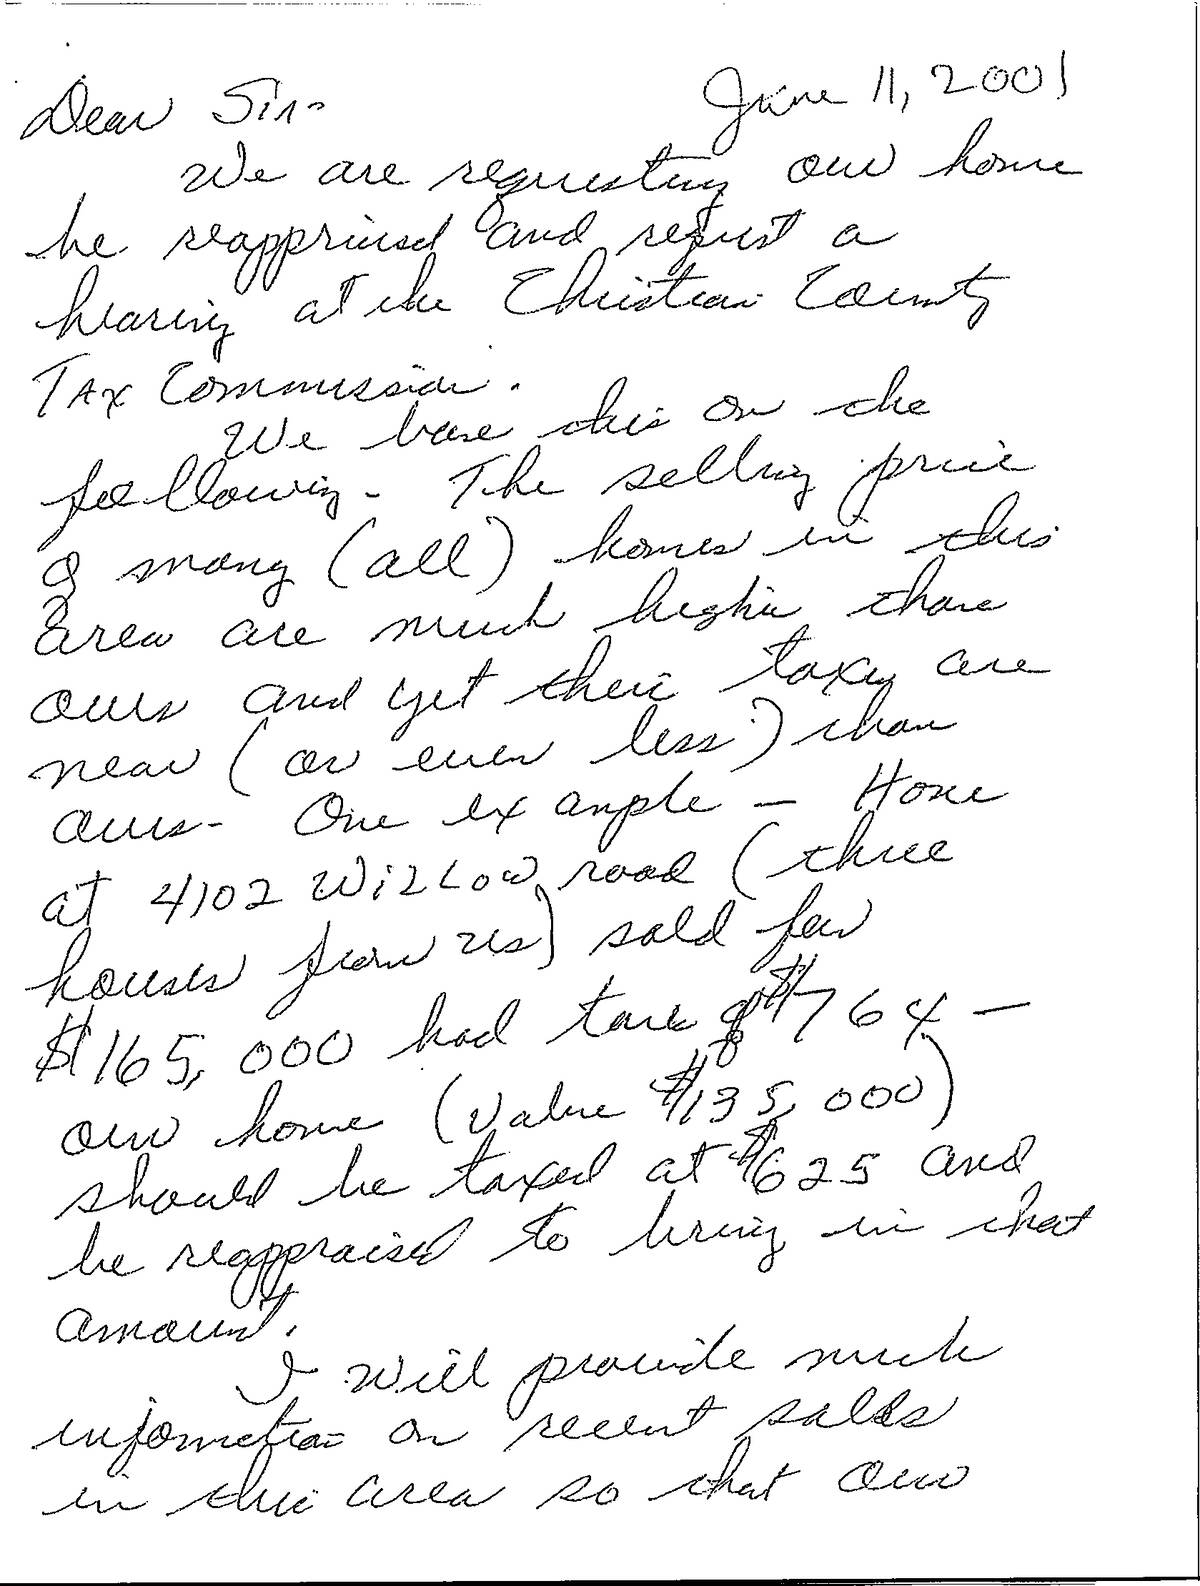 June 11, 2001
Dear Sir-
We are requesting our home
be reappraised and request a
hearing at the Christian County
Tax Commission.
We base this on the
following - The selling price
of many (all) homes in this
area are much higher than
ours and yet their taxes are
near (or even less) than
ours - One example - Home
at 4102 Willow road (three
houses from us) sold for
$165,000 had taxes of $764 -
our home (value $135,000)
should be taxed at $625 and
be reappraised to bring in that
amount.
I will provide much
information on recent sales
in this area so that our